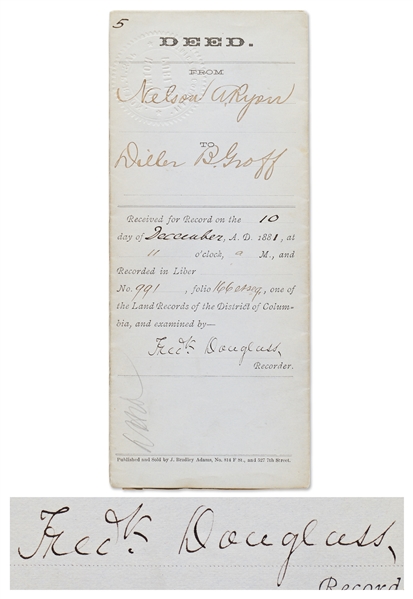 5
DEED.
FROM
Nelson A. Ryon
TO
Diller B. Groff
Received for Record on the 10
day of December, A. D. 1881, at
11 o'clock, a M., and
Recorded in Liber
No. 991, folio 166 et seq, one of
the Land Records of the District of Colum-
bia, and examined by—
Fredk. Douglass,
Recorder.
Published and Sold by J. Bradley Adams, No. 814 F St., and 527 7th Street.
Fredk. Douglass,
Record